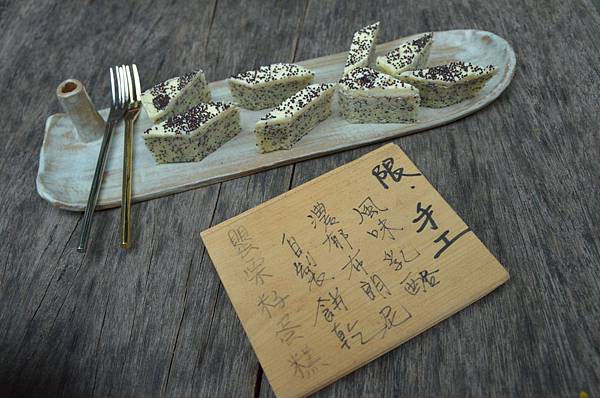 限.手工
風味乳酪
濃郁布朗尼
自製餅乾
罌粟籽蛋糕